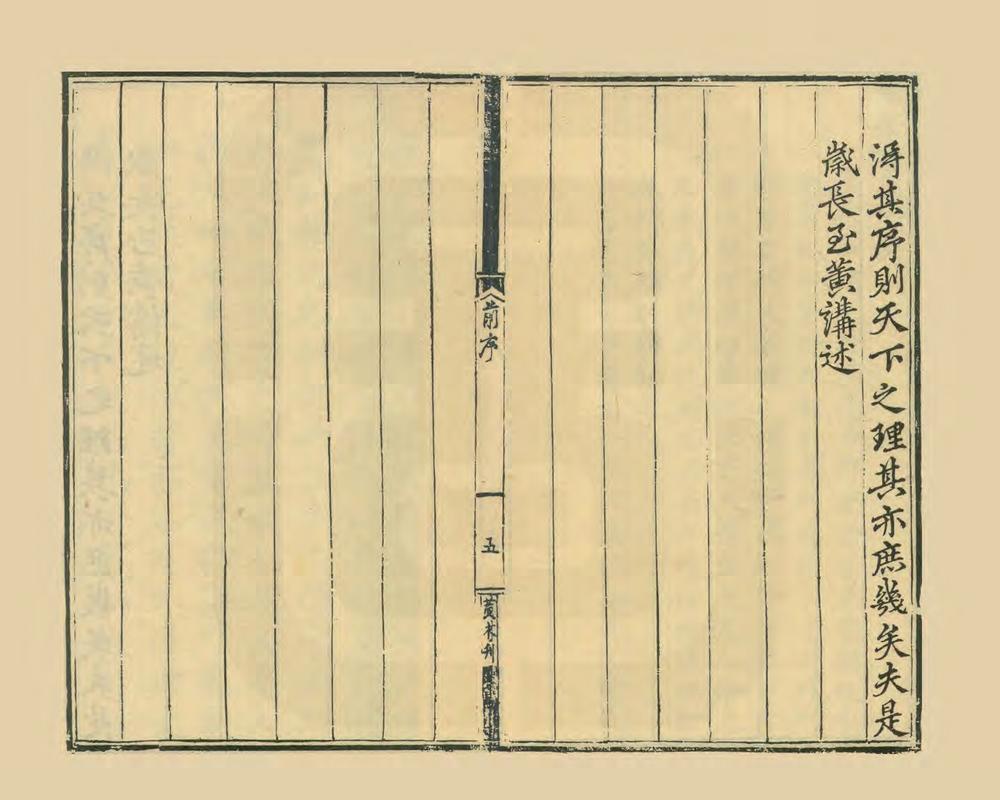 淂其序則天下之理其亦庶幾矣夫是
歲長至黄講述
前序
五
黄
刋